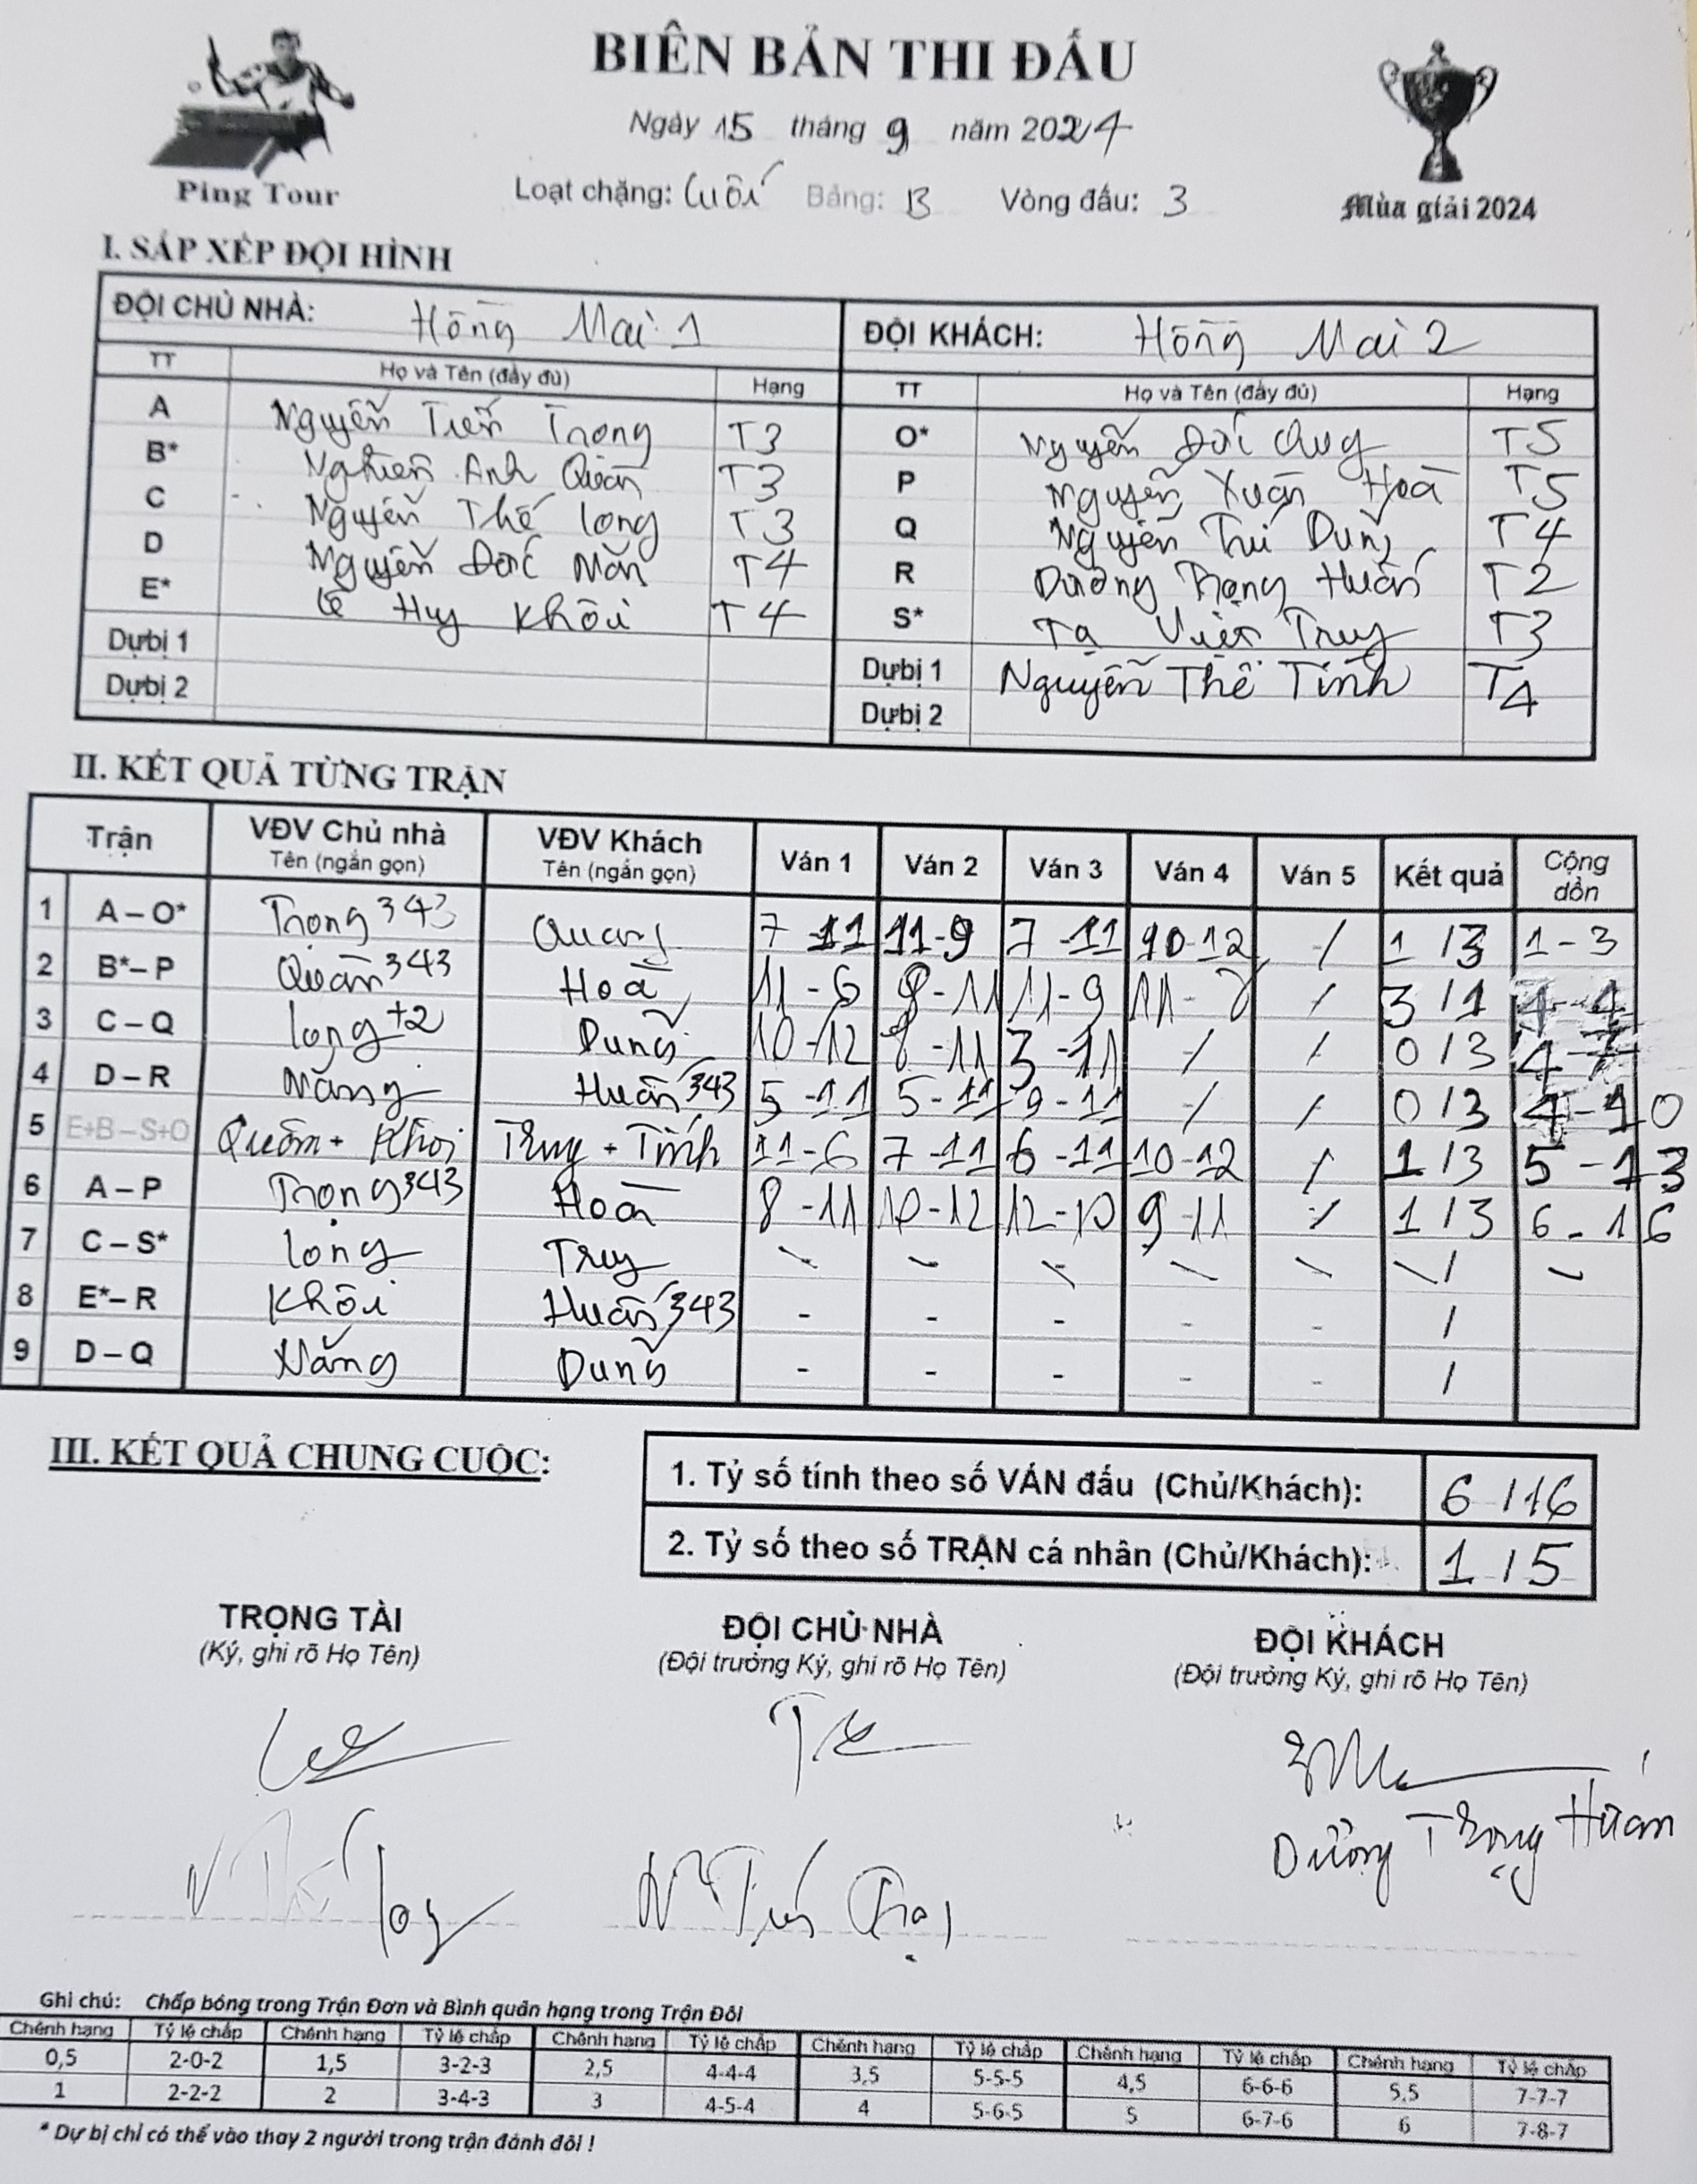 BIÊN BẢN THI ĐẤU
Ping Tour
Ngày 15 tháng 9 năm 2024
Mùa giải 2024
Loạt chặng: Cuối Bảng: B Vòng đấu: 3
I. SẮP XẾP ĐỘI HÌNH
ĐỘI CHỦ NHÀ: Hồng Mai 1 ĐỘI KHÁCH: Hồng Mai 2
TT Họ và Tên (đầy đủ) Hạng TT Họ và Tên (đầy đủ) Hạng
A Nguyễn Tiến Trọng T3 O* Nguyễn Đức T5
B* Nghiêm Anh Quân T3 P Nguyễn Xuân Hoà T5
C Nguyễn Thế Long T3 Q Nguyễn Trí Dũng T4
D Nguyễn Đức Năng T4 R Dương Trọng Huấn T2
E* Lê Huy Khôi T4 S* Tạ Việt Truy T3
Dự bị 1 Dự bị 1 Nguyễn Thế Tính T4
Dự bị 2 Dự bị 2
II. KẾT QUẢ TỪNG TRẬN
Trận VĐV Chủ nhà Tên (ngắn gọn) VĐV Khách Tên (ngắn gọn) Ván 1 Ván 2 Ván 3 Ván 4 Ván 5 Kết quả Cộng dồn
1 A – O* Trọng 343 Quang 7 - 11 11 - 9 7 - 11 10 - 12 / 1 / 3 1 - 3
2 B* – P Quân 343 Hoà 11 - 6 8 - 11 11 - 9 11 - / 3 / 1 4 - 4
3 C – Q Long +2 Dũng 10 - 12 8 - 11 3 - 11 / / 0 / 3 4 - 7
4 D – R Năng Huấn 343 5 - 11 5 - 11 9 - 11 / / 0 / 3 4 - 10
5 E+B – S+O Quân + Khôi Truy + Tính 11 - 6 7 - 11 6 - 11 10 - 12 / 1 / 3 5 - 13
6 A – P Trọng 343 Hoà 8 - 11 10 - 12 12 - 10 9 - 11 / 1 / 3 6 - 16
7 C – S* Long Truy - - - - - / -
8 E* – R Khôi Huấn 343 - - - - - /
9 D – Q Năng Dũng - - - - - /
III. KẾT QUẢ CHUNG CUỘC:
1. Tỷ số tính theo số VÁN đấu (Chủ/Khách): 6 / 16
2. Tỷ số theo số TRẬN cá nhân (Chủ/Khách): 1 / 5
TRỌNG TÀI ĐỘI CHỦ NHÀ ĐỘI KHÁCH
(Ký, ghi rõ Họ Tên) (Đội trưởng Ký, ghi rõ Họ Tên) (Đội trưởng Ký, ghi rõ Họ Tên)
Dương Trọng Huấn
N Thế Long N Tiến Trọng
Ghi chú: Chấp bóng trong Trận Đơn và Bình quân hạng trong Trận Đôi
Chênh hạng Tỷ lệ chấp Chênh hạng Tỷ lệ chấp Chênh hạng Tỷ lệ chấp Chênh hạng Tỷ lệ chấp Chênh hạng Tỷ lệ chấp Chênh hạng Tỷ lệ chấp
0,5 2-0-2 1,5 3-2-3 2,5 4-4-4 3,5 5-5-5 4,5 6-6-6 5,5 7-7-7
1 2-2-2 2 3-4-3 3 4-5-4 4 5-6-5 5 6-7-6 6 7-8-7
* Dự bị chỉ có thể vào thay 2 người trong trận đánh đôi !